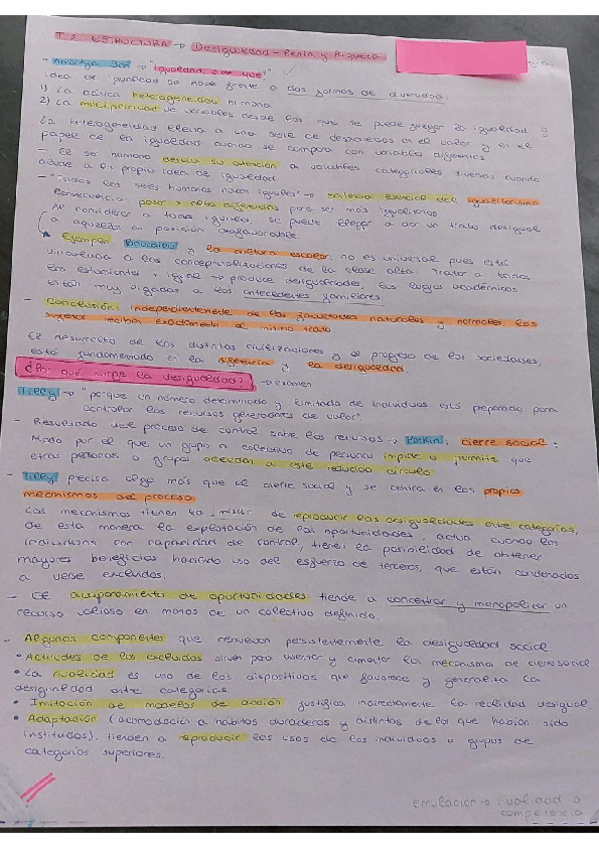 T.2. ESTRUCTURA → Desigualdad - Renta y Riqueza
- Amartya Sen → "Igualdad, ¿de qué?"
idea de igualdad se hace frente a dos formas de diversidad:
1) La básica heterogeneidad humana
2) La multiplicidad de variables desde las que se puede juzgar la igualdad.
La heterogeneidad lleva a una serie de en el valor y en el
papel de la igualdad cuando se compara con variables diferentes.
- El ser humano desvía su atención a variables categoriales diversas cuando
alude a su propia idea de igualdad.
- "Todos los seres humanos nacen iguales" → del igualitarismo
Consecuencia: pasar x alto para ser más igualitarios
Al considerar a todos iguales, se puede llegar a dar un trato desigual
a aquellos en posición desfavorable.
Ejemplo: Bourdieu y la cultura escolar, no es universal pues está
vinculada a las conceptualizaciones de la clase alta. Tratar a todos
los estudiantes x igual → produce desigualdades, los logros académicos
están muy ligados a los antecedentes familiares.
- Conclusión: independientemente de las facultades naturales y normales, los
sujetos reciban exactamente el mismo trato
El desarrollo de las distintas civilizaciones y el progreso de las sociedades,
está fundamentado en la y la desigualdad.
¿Por qué surge la desigualdad? → examen
Tilly → "porque un número determinado y limitado de individuos está preparado para
controlar los recursos generadores de valor".
- Resultado de el proceso de control entre los recursos → Parkin: cierre social:
Modo por el que un grupo o colectivo de personas impide o permite que
otras personas o grupos accedan a este reducido círculo
- Tilly precisa algo más que el cierre social y se centra en los propios
mecanismos del proceso.
Los mecanismos tienen la misión de reproducir las desigualdades entre categorías,
de esta manera la explotación de las oportunidades, actúa cuando los
individuos con capacidad de control, tienen la posibilidad de obtener
mayores beneficios haciendo uso del esfuerzo de terceros, que están condenados
a verse excluidos.
- El acaparamiento de oportunidades tiende a concentrar y monopolizar un
recurso valioso en manos de un colectivo definido.
- Algunos componentes que renuevan persistentemente la desigualdad social
• Actitudes de los excluidos sirven para asentar y cimentar los mecanismos de cierre social
• La rivalidad es uno de los dispositivos que favorece y generaliza la
desigualdad entre categorías
• Imitación de modelos de acción justifica indirectamente la realidad desigual.
• Adaptación (acomodación a hábitos duraderos y distintos de los que habían sido
instituidos), tienden a reproducir los usos de los individuos o grupos de
categorías superiores.
emulación → rivalidad o
competencia